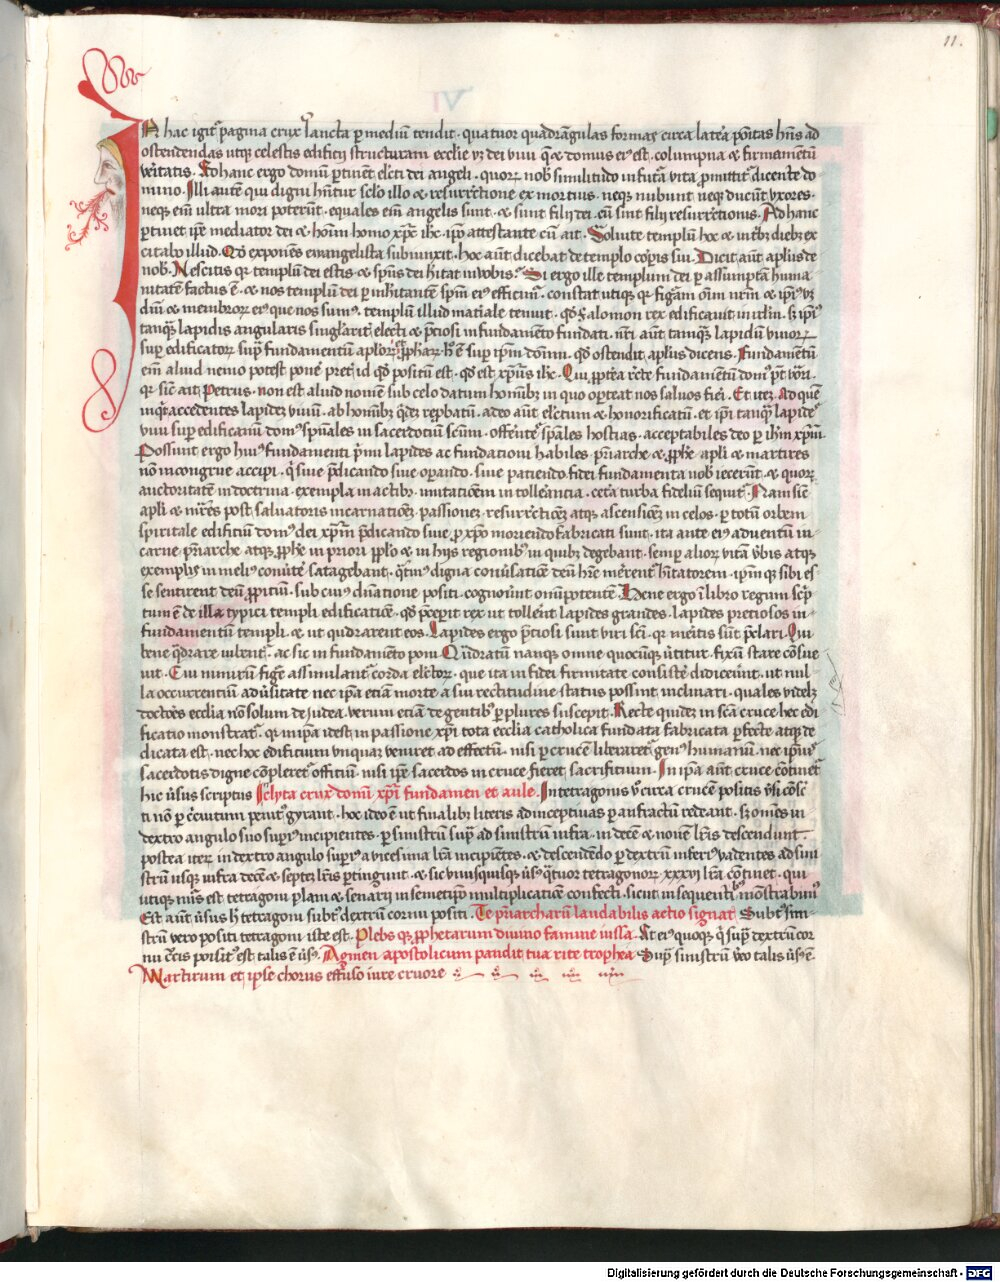 11.
VI
IN hac igit᷑ pagina crux sancta p mediū tendit · quatuor quadrāgulas formas circa latera positas hñs ad
ostendendas utiqꝫ celestis edificij structuram ecclie vꝫ dei vivi que & domus eiꝰ est · columpna & firmamētū
veritatis · Ad hanc ergo domū ptinēt elcti dei angeli · quorꝫ nobis similitudo in futura vita promittit᷑ dicente do
mino · Illi autē qui digni hñtur sclo illo & resurrctione ex mortuis · neqꝫ nubunt neqꝫ ducūt uxores ·
neqꝫ eīn ultra mori poterūt · equales eīn angelis sunt · & sunt filij dei · cū sint filij resurrctionis · Ad hanc
ptinet ipē mediator dei & hoīm homo xpc ihc · ipo attestante cū ait · Soluite templū hoc & in tribꝫ diebꝫ ex
citabo illud · Qd exponēs euangelista subiunxit · hoc aūt dicebat de templo corpis sui · Dicit aūt aplus de
nobis · Nescitis qr templū dei estis & spūs dei hitat in vobis · Si ergo ille templum dei p assumptam huma
nitatē factus ē · & nos templū dei p inhitantem spm eiꝰ efficimur · constat utiqꝫ qr figuram oīm nrm & ipiꝰ vꝫ
dm & membrorꝫ eiꝰ que nos sumꝰ · templū illud matiale tenuit · qd Salomon rex edificauit in irlm · sꝫ ipe
tanqꝫ lapidis angularis singularit᷑ electi & pciosi in fundamēto fundati · nri aūt tanqꝫ lapidū vivorꝫ
sup edificatorꝫ supra fundamentū aplorꝫ & prophetarꝫ · hoc ē sup ipm domnu · qd ostendit aplus dicens · Fundamētū
eīn aliud nemo potest ponere preter id qd positū est · qd est xpius ihc · Qui propterea recte fundamētū domꝰ pt vocari ·
qr sicut ait Petrus · non est aliud nomē sub celo datum hoībꝫ in quo oporteat nos saluos fieri · Et iterꝫ Ad quē
inqt accedentes lapidē vivū · ab hoībꝫ qdē repbatū · a deo aūt elctum & honorificatū · et ipi tanqꝫ lapides
vivi sup edificamini domꝰ spūales in sacerdotiū scūm · offerētes spūales hostias · acceptabiles deo p ihm xpm
Possunt ergo huiꝰ fundamenti primi lapides ac fundationi habiles · priarche & prophe · apli & martires
nō incongrue accipi · qi siue predicando siue operando · siue patiendo fidei fundamenta nobis iecerūt · & quorꝫ
auctoritatē in doctrina · exempla in actibꝫ · imitatōem in tollerancia · cetera turba fidelium sequit᷑ · Nam sicut
apli & mres post saluatoris incarnatōem · passionē · resurrctionē atqꝫ ascensionē in celos · p totū orbem
spiritale edificiū domꝰ dei xpm predicando siue pro xpo moriendo fabricati sunt · ita ante eiꝰ aduentū in
carne priarche atqꝫ prophe in priori pplo & in hijs regionibꝰ in quibꝫ degebant · semp aliorꝫ vitā verbis atqꝫ
exemplis in meliꝰ conuertere satagebant · qtinus digna conuersatione deū hre mererent᷑ hitatorem · ipmqꝫ sibi es
se sentirent deū propitiū · sub cuiꝰ ditione positi · cognorūt omipotentē · Bene ergo in libro regum scrip
tum ē de illa typici templi edificatione · qd precepit rex ut tollerent lapides grandes · lapides preciosos in
fundamentū templi & ut qudrarent eos · Lapides ergo pciosi sunt viri sci · qr meritis sūt preclari · Qui
bene qdrare iubent᷑ · ac sic in fundamēto poni · Qudratū nanqꝫ omne quocūqꝫ vertitur · fixū stare cōsue
uit · Cui nimirū figure assimulant᷑ corda elctorꝫ · que ita in fidei firmitate consistere didicerūt · ut nul
la occurrentiū aduersitate nec ipsa etiā morte a sui rectitudine status possint inclinari · quales videlꝫ
doctores ecclia nō solum de Judea · verum etiā de gentibꝰ pplures suscepit · Recte quidē in scā cruce hec edi
ficatio monstrat᷑ · qr in ipa idest in passione xpi tota ecclia catholica fundata fabricata pfecte atqꝫ de
dicata est · nec hoc edificium unquaꝫ veniret ad effectū · nisi p crucē liberaret᷑ genꝰ humanū · nec ipius
sacerdotis digne cōpleret᷑ officiū · nisi ipe sacerdos in cruce fieret sacrificium · In ipa aūt cruce cōtinet᷑
hic versus scriptus Inclyta crux domi xpi fundamen et aule · In tetragonis vero circa crucē positis versi cōsc
ti nō p circuitum penit᷑ gyrant · hoc ideo ē ut finalibꝫ literis ad inceptiuas p anfractū redeant · sꝫ omēs in
dextro angulo suo superiꝰ incipientes · p sinistrū supra ad sinistrū infra · in decē & nouē lris descendunt ·
postea iterꝫ in dextro angulo superiꝰ a vicesima lra incipientes · & descendēdo p dextrū inferiꝰ vadentes ad sini
strū usqꝫ infra decē & septē lris ptingunt · & sic vnusquisqꝫ versꝰ qtuor tetragonorꝫ xxxvj lras cōtinet · qui
utiqꝫ numerꝰ est tetragoni plani & senarij in semetipm multiplicatione confecti · sicut in sequentibꝰ mōstrabimꝰ
Est aūt versus hic tetragoni subtꝰ dextrū cornu positi · Te priarcharū laudabilis actio signat Subtꝰ sini
strū vero positi tetragoni iste est · Plebs qꝫ prophetarum diuino famine iussa · At eiꝰ quoqꝫ qi supra dextrū cor
nu crucis positꝰ est talis ē versꝰ · Agmen apostolicum pandit tua rite trophea Supra sinistrū vero talis versꝰ ē ·
Martirum et ipse chorus effuso iure cruore
Digitalisierung gefördert durch die Deutsche Forschungsgemeinschaft - DFG